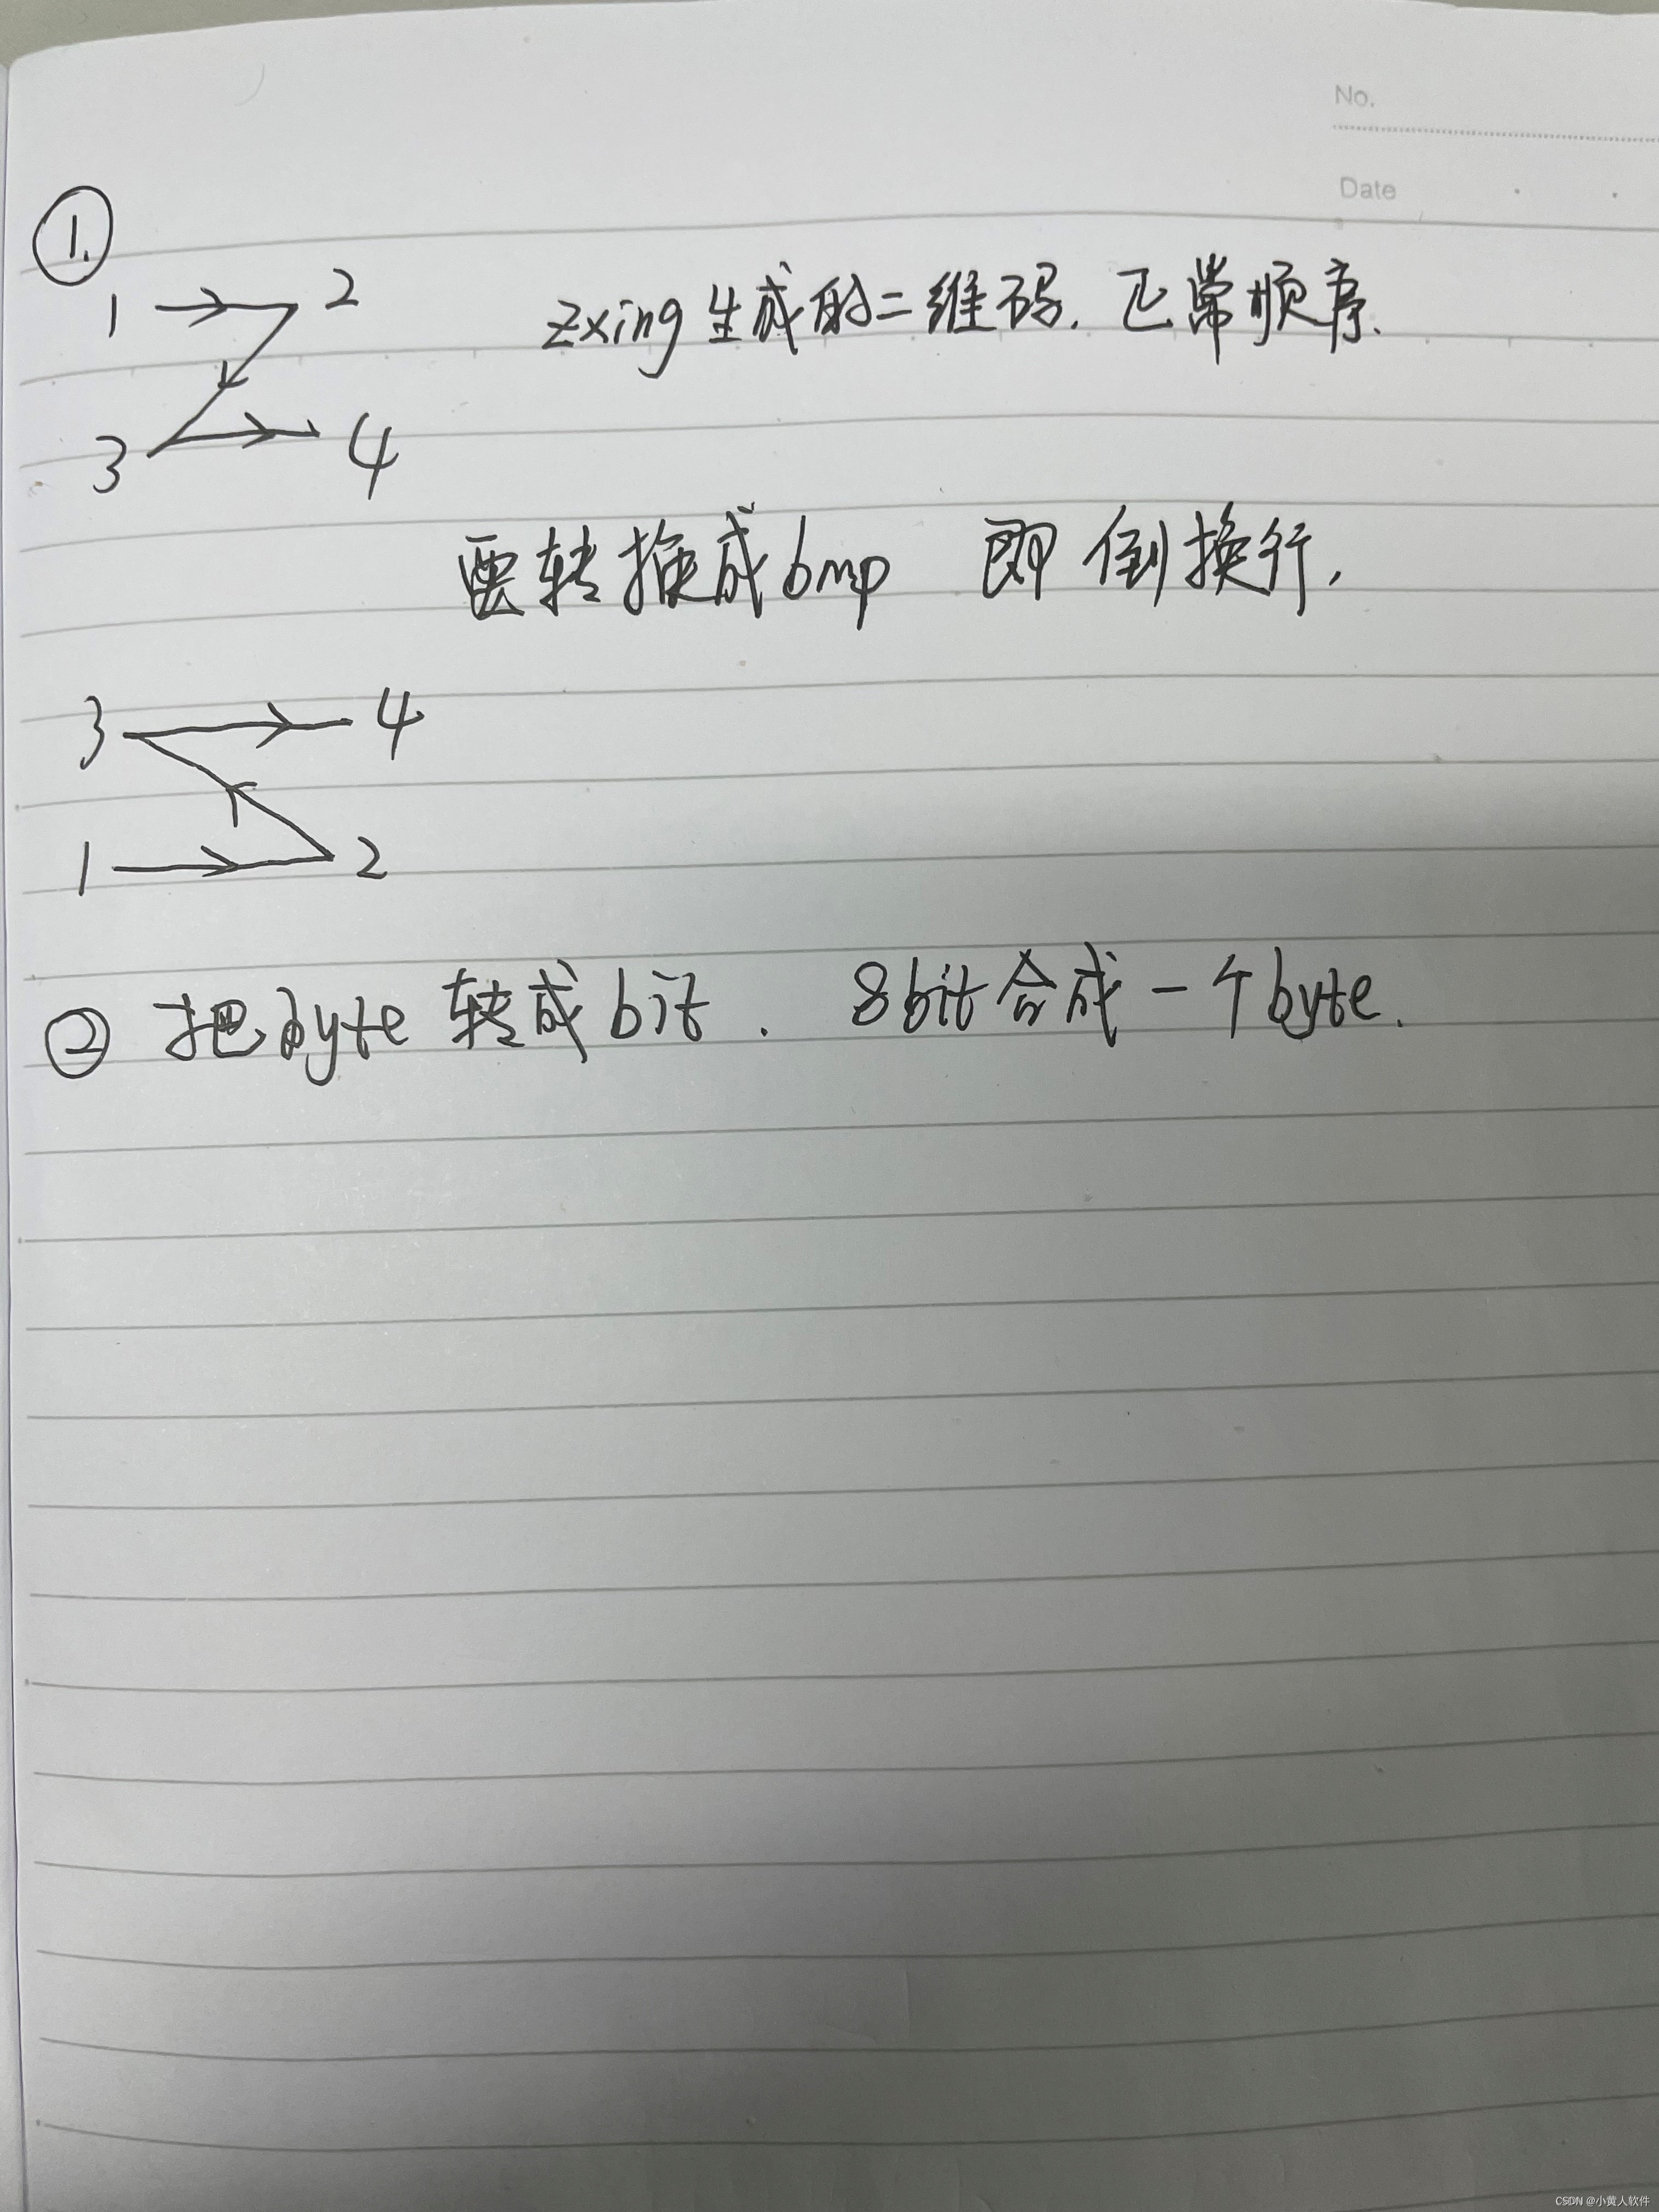 No.
Date
①.
1 2 zxing生成的二维码. 正常顺序.
3 4
要转换成bmp 即 倒换行.
3 4
1 2
② 把byte 转成bit. 8bit合成一个byte.
CSDN @小黄人软件